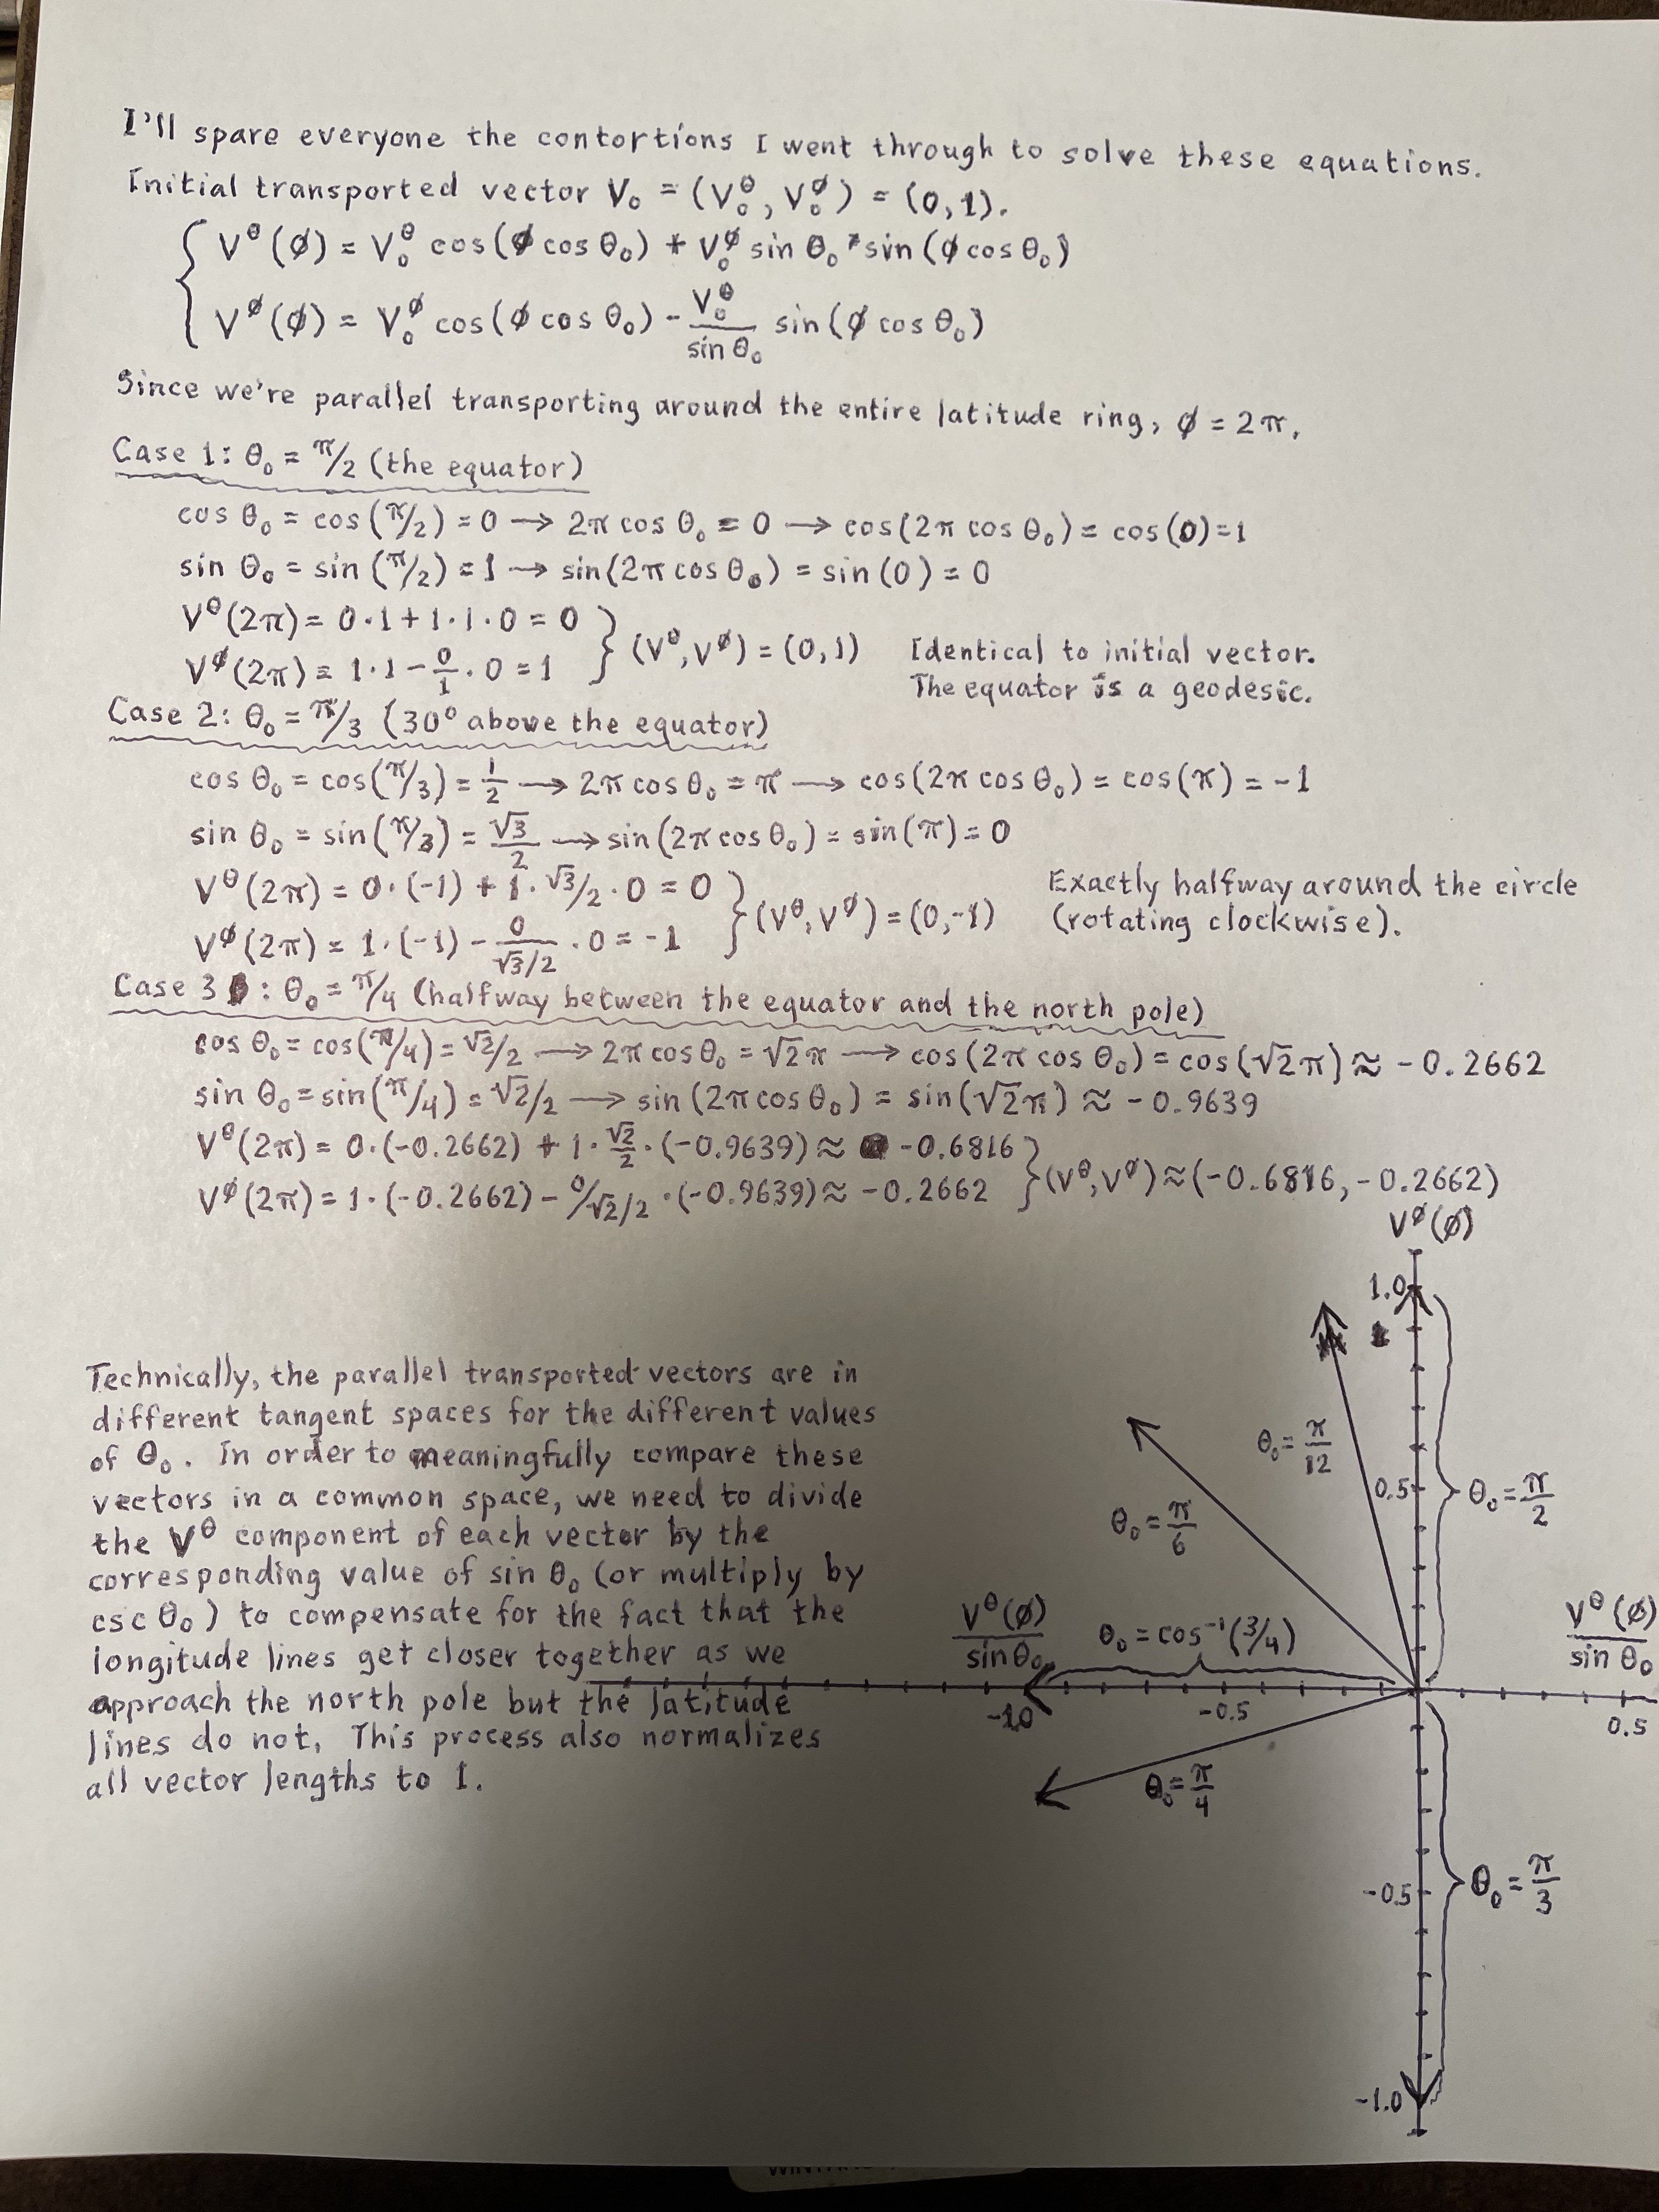 I'll spare everyone the contortions I went through to solve these equations.
Initial transported vector V₀ = (V₀^θ, V₀^φ) = (0,1).
V^θ(φ) = V₀^θ cos(φ cos θ₀) + V₀^φ sin θ₀ * sin(φ cos θ₀)
V^φ(φ) = V₀^φ cos(φ cos θ₀) - V₀^θ/sin θ₀ sin(φ cos θ₀)
Since we're parallel transporting around the entire latitude ring, φ = 2π.
Case 1: θ₀ = π/2 (the equator)
cos θ₀ = cos(π/2) = 0 → 2π cos θ₀ = 0 → cos(2π cos θ₀) = cos(0) = 1
sin θ₀ = sin(π/2) = 1 → sin(2π cos θ₀) = sin(0) = 0
V^θ(2π) = 0·1 + 1·1·0 = 0
V^φ(2π) = 1·1 - 0/1·0 = 1
} (V^θ, V^φ) = (0,1)
Identical to initial vector.
The equator is a geodesic.
Case 2: θ₀ = π/3 (30° above the equator)
cos θ₀ = cos(π/3) = 1/2 → 2π cos θ₀ = π → cos(2π cos θ₀) = cos(π) = -1
sin θ₀ = sin(π/3) = √3/2 → sin(2π cos θ₀) = sin(π) = 0
V^θ(2π) = 0·(-1) + 1·√3/2·0 = 0
V^φ(2π) = 1·(-1) - 0/(√3/2)·0 = -1
} (V^θ, V^φ) = (0,-1)
Exactly halfway around the circle
(rotating clockwise).
Case 3: θ₀ = π/4 (halfway between the equator and the north pole)
cos θ₀ = cos(π/4) = √2/2 → 2π cos θ₀ = √2π → cos(2π cos θ₀) = cos(√2π) ≈ -0.2662
sin θ₀ = sin(π/4) = √2/2 → sin(2π cos θ₀) = sin(√2π) ≈ -0.9639
V^θ(2π) = 0·(-0.2662) + 1·√2/2·(-0.9639) ≈ -0.6816
V^φ(2π) = 1·(-0.2662) - 0/√2/2·(-0.9639) ≈ -0.2662
} (V^θ, V^φ) ≈ (-0.6816, -0.2662)
Technically, the parallel transported vectors are in
different tangent spaces for the different values
of θ₀. In order to meaningfully compare these
vectors in a common space, we need to divide
the V^θ component of each vector by the
corresponding value of sin θ₀ (or multiply by
csc θ₀) to compensate for the fact that the
longitude lines get closer together as we
approach the north pole but the latitude
lines do not. This process also normalizes
all vector lengths to 1.
V^φ(φ)
1.0
θ₀ = π/12
0.5
θ₀ = π/2
θ₀ = π/6
V^θ(φ)/sin θ₀
θ₀ = cos⁻¹(3/4)
V^θ(φ)/sin θ₀
-1.0
-0.5
0.5
θ₀ = π/4
-0.5
θ₀ = π/3
-1.0